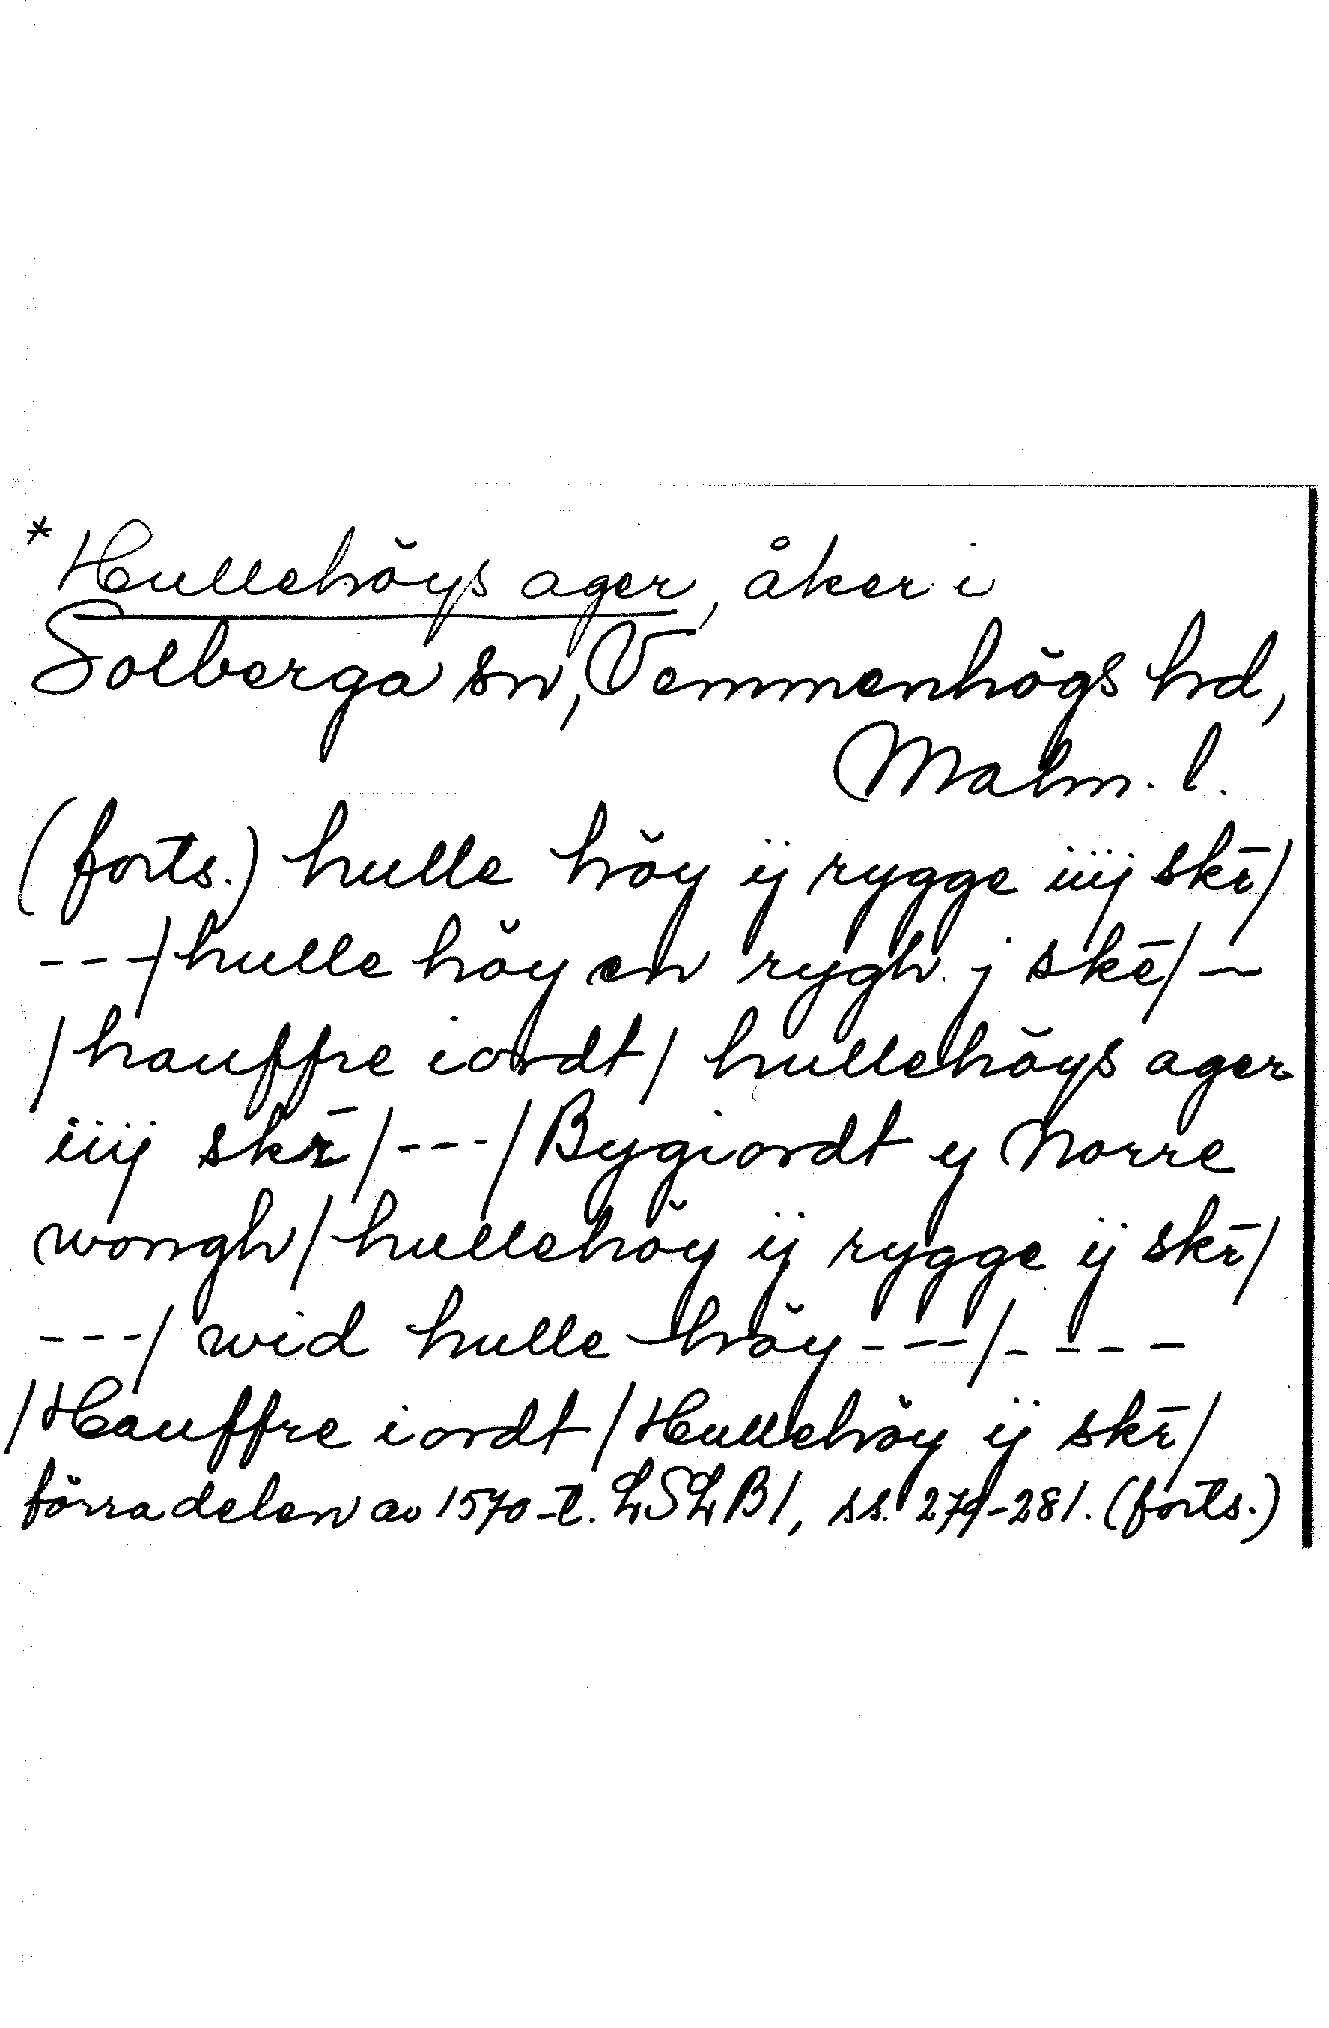 * Hullehöys ager, åker i
Solberga sn, Vemmenhögs hd,
Malm. l.
(forts.) hulle höy ij rygge iiij skr̄/
---/ hulle höy en rygh j skē/ —
/ hauffre iordt / hullehöys ager
iiij skr̄ /---/ Bygiordt y Norre
wongh / hullehöy ij rygge ij skr̄/
---/ wid hulle höy ---/----
/ Hauffre iordt / Hullehöy ij skr̄/
förra delen av 1570-t. LSLB1, ss. 279-281. (forts.)